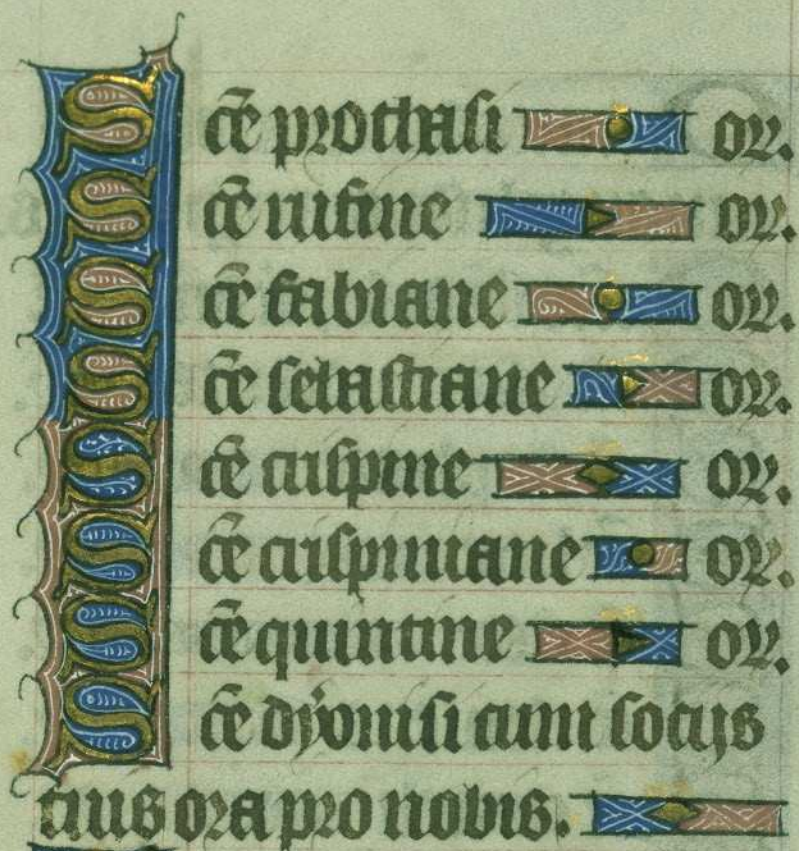 Sc̄e prothasi or.
Sc̄e rufine or.
Sc̄e fabiane or.
Sc̄e sebastiane or.
Sc̄e crispine or.
Sc̄e crispiniane or.
Sc̄e quintine or.
Sc̄e dẏonisi cum socijs
tuis ora pro nobis.